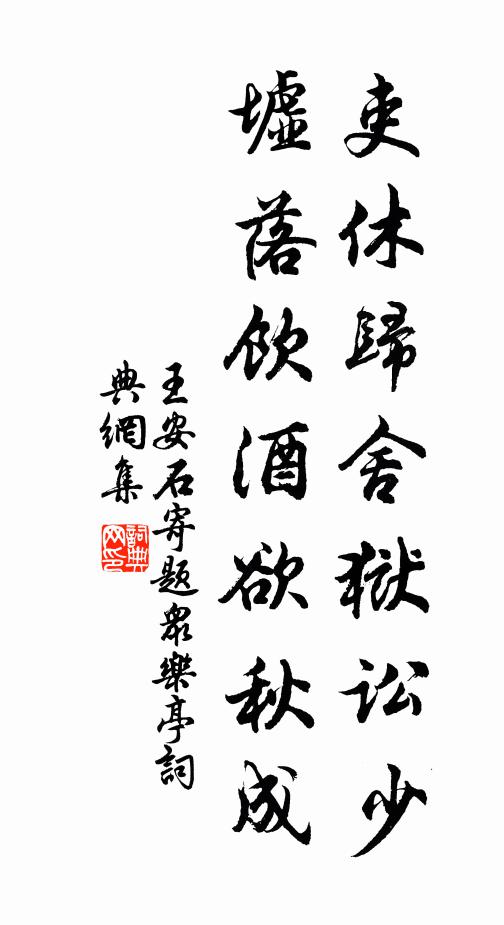 吏休歸舍獄訟少
墟落飲酒欲秋成
王安石寄題眾樂亭詞
典網集
詞典
网印